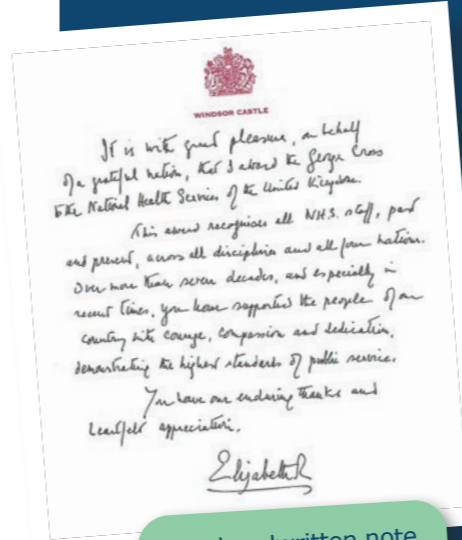 WINDSOR CASTLE
It is with great pleasure, on behalf
of a grateful nation, that I award the George Cross
to the National Health Services of the United Kingdom.
This award recognises all N.H.S. staff, past
and present, across all disciplines and all four nations.
Over more than seven decades, and especially in
recent times, you have supported the people of our
country with courage, compassion and dedication,
demonstrating the highest standards of public service.
You have our enduring thanks and
heartfelt appreciation.
Elizabeth R
written note